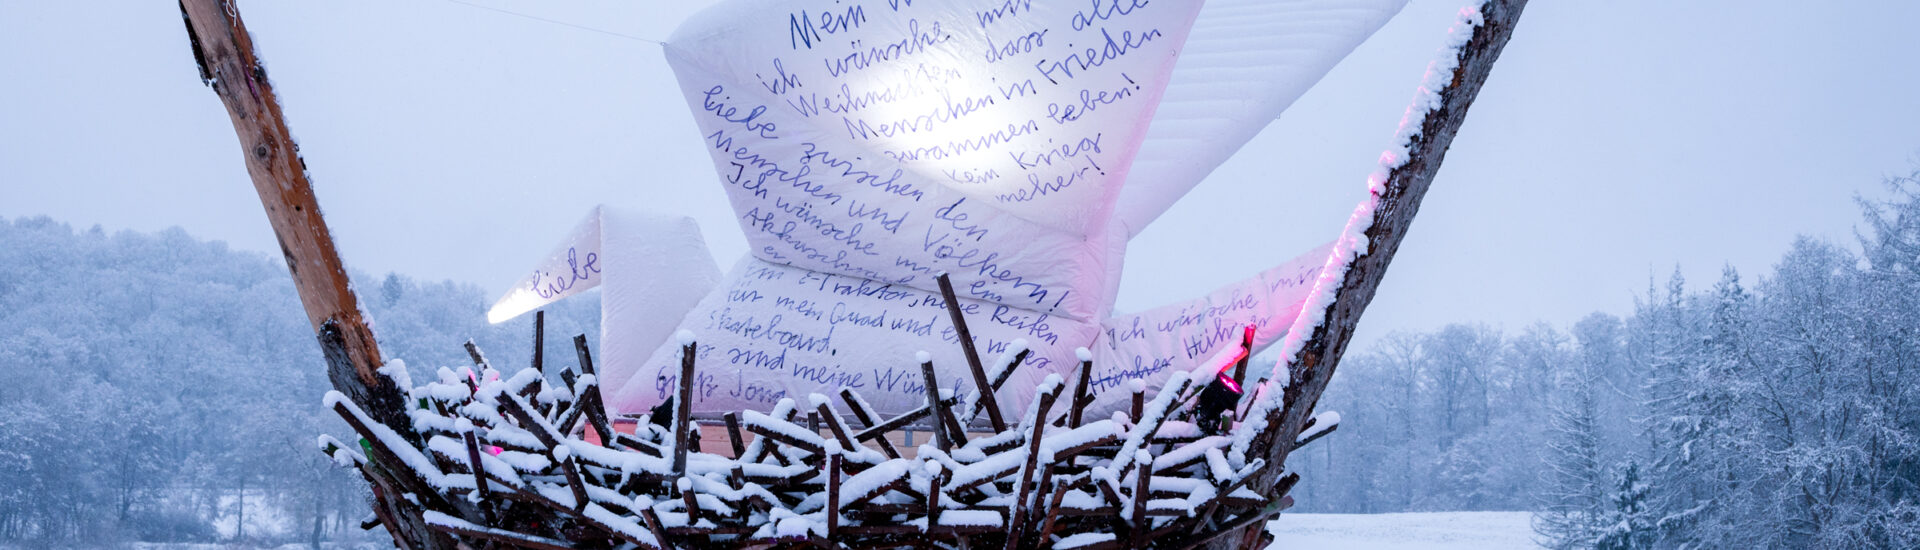 Mein W
ich wünsche mir
Weihnachten dass alle
Menschen in Frieden
zusammen leben!
Kein Krieg
meher!
liebe zwischen den
Menschen und Völkern!
Ich wünsche mir ein
Akkuschrauber
ein E-Traktor, neue Reifen
für mein Quad und ein neues
Skateboard.
sind meine Wünsch
Gruß Jona
liebe
Ich wünsche mir
Hünher Hühner